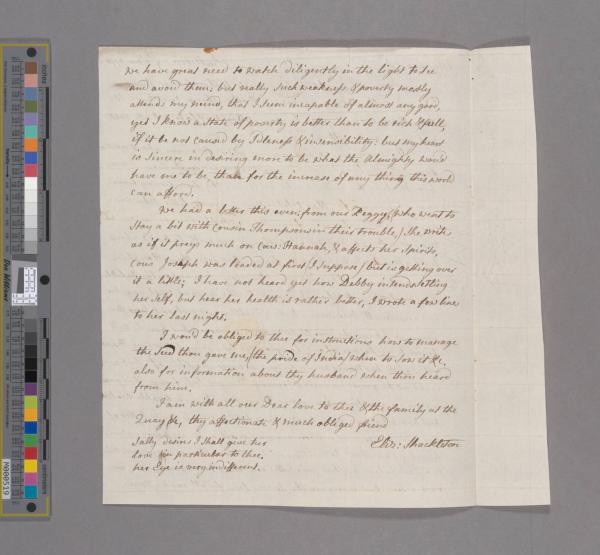 we have great need to watch diligently in the light to see
and avoid them; but really such weakness & poverty mostly
attends my mind, that I seem incapable of almost any good,
yet I know a state of poverty is better than to be rich & full,
if it be not caused by Idleness & insensibility: but my heart
is sincere in desiring more to be what the Almighty would
have me to be, than for the increase of any thing this world
can afford.
We had a letter this even; from our Peggy, (who went to
stay a bit with Cousin Thompsons in their trouble,) She writes
as if it preys much on Cous: Hannah, & affects her Spirits,
Cous: Joseph was loaded at first I suppose / but is getting over
it a little; I have not heard yet how Debby intends settling
her self, but hear her health is rather better, I wrote a few lines
to her last night.
I wou'd be obliged to thee for instructions how to manage
the Seed thou gave me, (the pride of India) when to sow it &c.
also for information about thy husband when thou heard
from him.
I am with all our Dear love to thee & the family at the
Quay &c, thy affectionate & much obliged friend
Eliz: Shackleton
Sally desires I shall give her
love in particular to thee.
her Eye is very indifferent.
inches
centimetres
M000519